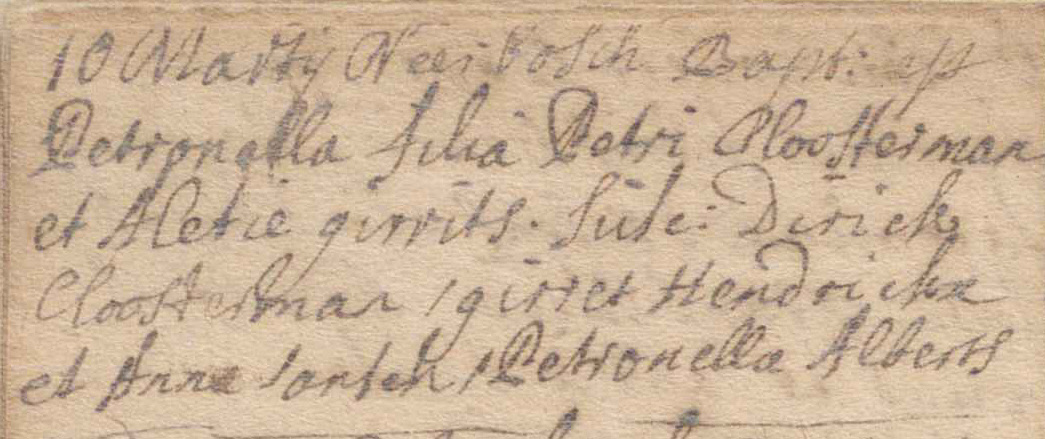 10 Martij Neerbosch Bapt: est
Petronella filia Petri Cloosterman
et Aletie girrits. Susc: Dirick
Cloosterman, girret Hendrickx
et Anna Santen, Petronella Alberts